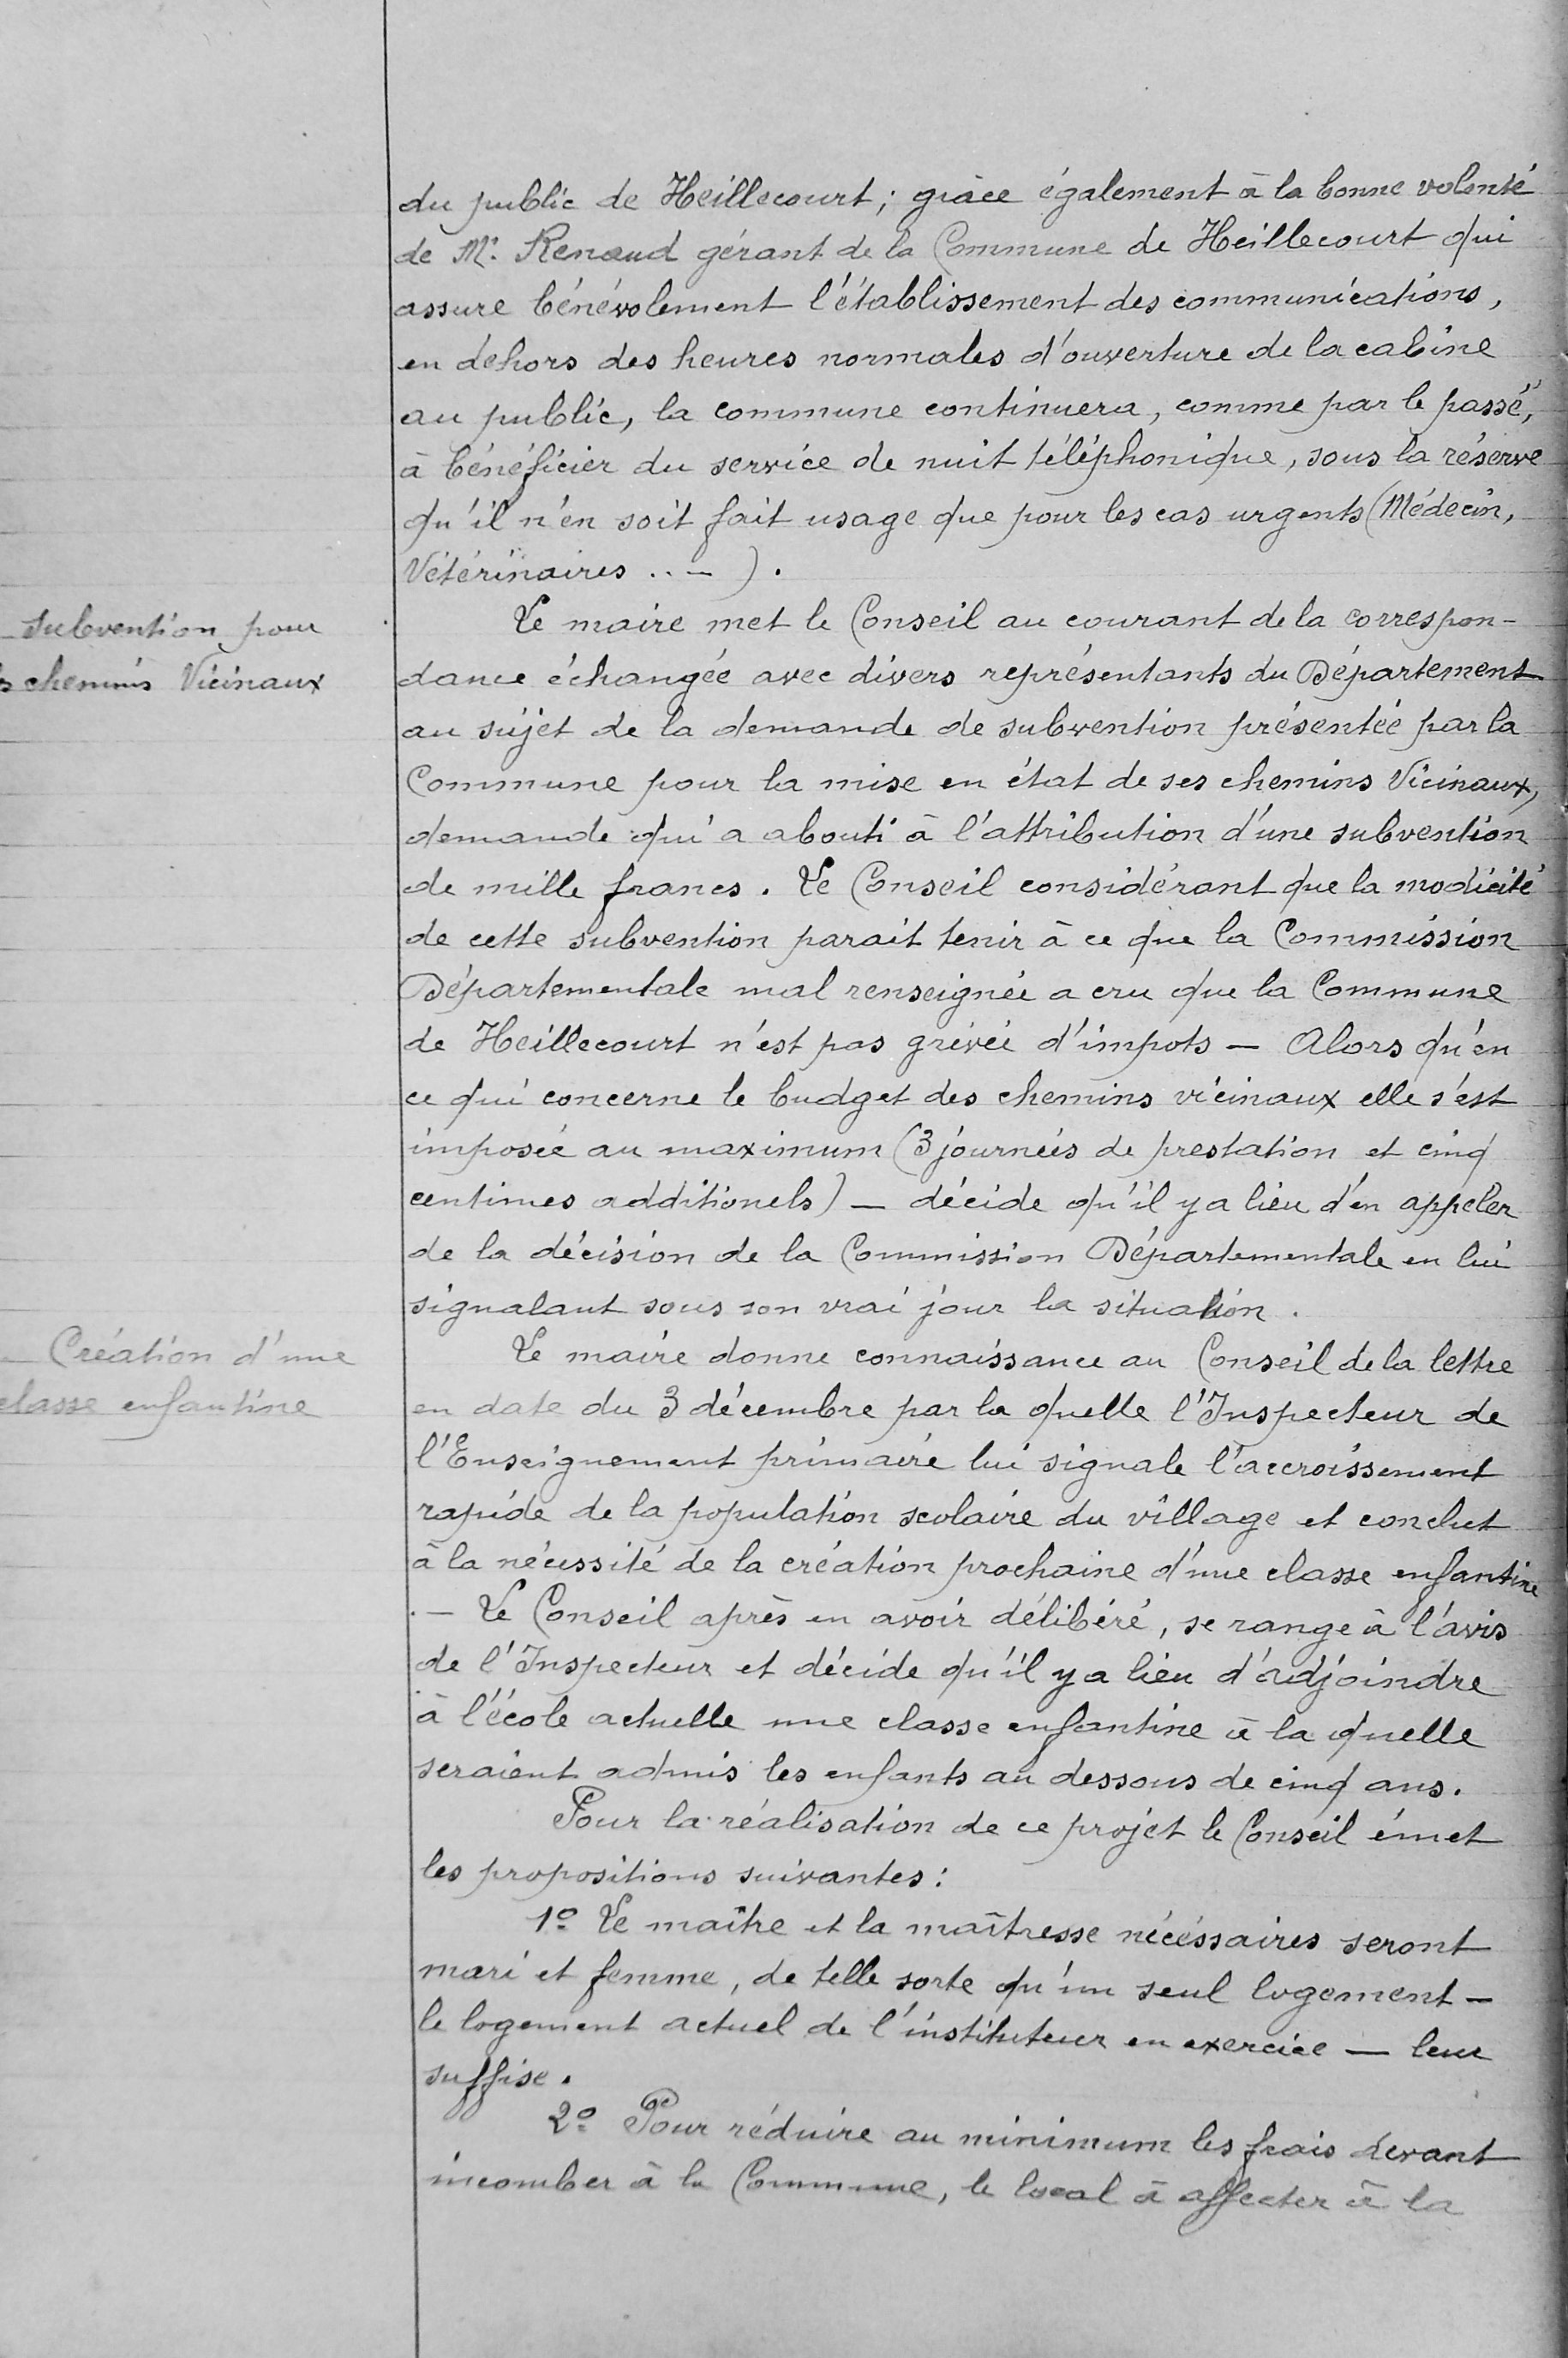 du public de Heillecourt ; grâce également à la bonne volonté
de Mr. Renaud gérant de la Commune de Heillecourt qui
assure bénévolement l'établissement des communications,
en dehors des heures normales d'ouverture de la cabine
au public, la commune continuera, comme par le passé,
à bénéficier du service de nuit téléphonique, sous la réserve
qu'il n'en soit fait usage que pour les cas urgents (Médecin,
Vétérinaires ..- ).
Subvention pour
s chemins Vicinaux
Le maire met le Conseil au courant de la correspon-
dance échangée avec divers représentants du Département
au sujet de la demande de subvention présentée par la
Commune pour la mise en état de ses chemins Vicinaux,
demande qui a abouti à l'attribution d'une subvention
de mille francs. Le Conseil considérant que la modicité
de cette subvention parait tenir à ce que la Commission
Départementale mal renseignée a cru que la Commune
de Heillecourt n'est pas grévée d'impots — Alors qu'en
ce qui concerne le budget des chemins vicinaux elle s'est
imposée au maximum (3 journées de prestation et cinq
centimes additionels) — décide qu'il y a lieu d'en appeler
de la décision de la Commission Départementale en lui
signalant sous son vrai jour la situation.
Création d'une
classe enfantine
Le maire donne connaissance au Conseil de la lettre
en date du 3 décembre par la quelle l'Inspecteur de
l'Enseignement primaire lui signale l'accroissement
rapide de la population scolaire du village et conclut
à la nécessité de la création prochaine d'une classe enfantine
.— Le Conseil après en avoir délibéré, se range à l'avis
de l'Inspecteur et décide qu'il y a lieu d'adjoindre
à l'école actuelle une classe enfantine à la quelle
seraient admis les enfants au dessous de cinq ans.
Pour la réalisation de ce projet le Conseil émet
les propositions suivantes :
1º Le maître et la maîtresse nécéssaires seront
mari et femme, de telle sorte qu'un seul logement —
le logement actuel de l'instituteur en exercice — leur
suffise.
2º Pour réduire au minimum les frais devant
incomber à la Commune, le local à affecter à la